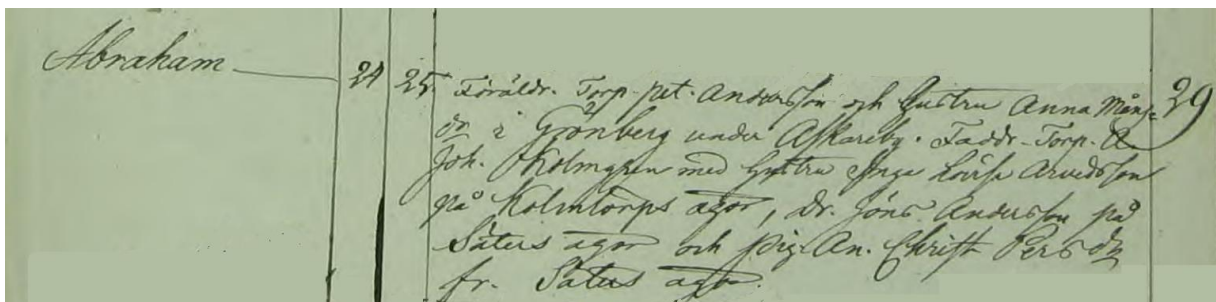 Abraham 24 25 Föräldr. Torp. Pet. Andersson och Hustru Anna Måns= 29
dr i Grönberg under Askareby. Faddr. Torp. A.
Joh. Holmgren med Hustru Inga Lovisa Arvedsson
på Holmtorps ägor, Dr. Jöns Andersson på
Säters ägor och Pig. An. Christ. Persdr
fr. Säters ägor.